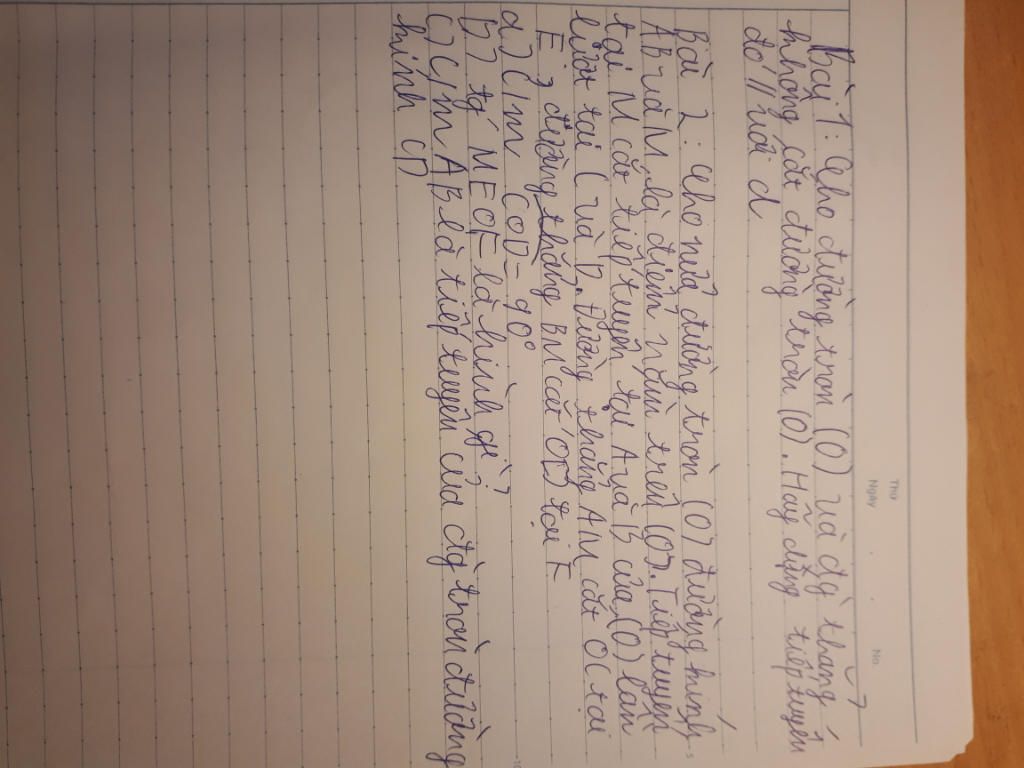 Thứ
Ngày . .
No.
Bài 1: Cho đường tròn (O) và đg thẳng
không cắt đường tròn (O). Hãy dựng tiếp tuyến
đó // với d
Bài 2: Cho nửa đường tròn (O) đường kính
AB và M là điểm nằm trên (O). Tiếp tuyến
tại M cắt tiếp tuyến tại A và B của (O) lần
lượt tại C và D. Đường thẳng AM cắt OC tại
E, đường thẳng BM cắt OD tại F
a) C/m COD = 90°
b) tg MEOF là hình gì?
c) C/m AB là tiếp tuyến của đg tròn đường
kính CD